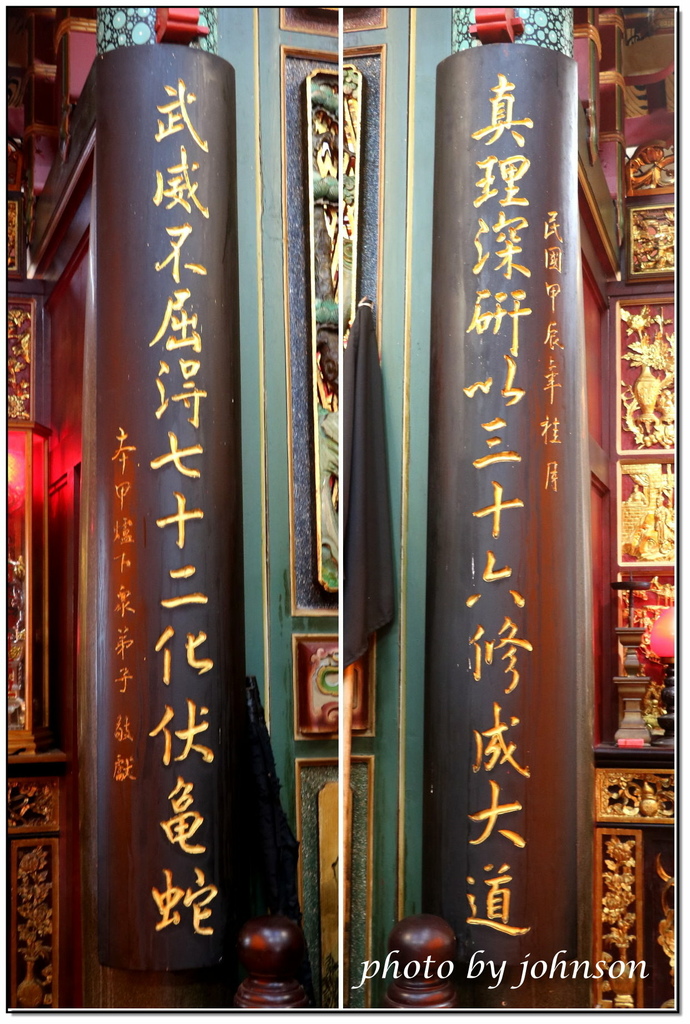 真理深研以三十六修成大道
民國甲辰年桂月
武威不屈得七十二化伏龜蛇
本甲爐下眾弟子敬獻
photo by johnson